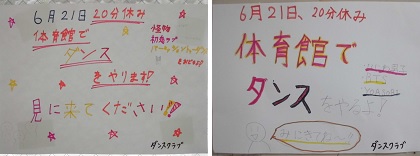 6月21日 20分休み
体育館で
怪物
ダンス
をやります!
見に来てください!!
ダンスクラブ
6月21日、20分休み
体育館で
ダンス
をやるよ!
みにきてね
ダンスクラブ